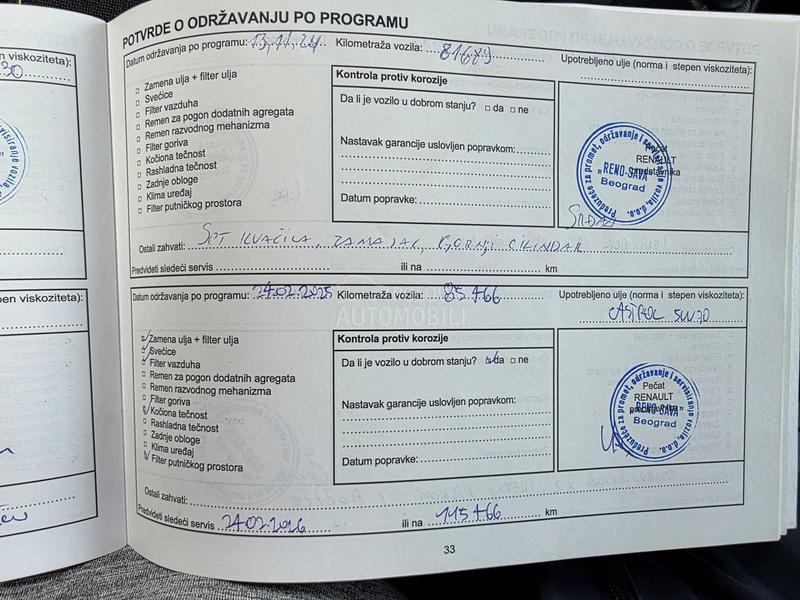 POTVRDE O ODRŽAVANJU PO PROGRAMU
Datum održavanja po programu: 13.11.24 Kilometraža vozila: 81689 Upotrebljeno ulje (norma i stepen viskoziteta):
Zamena ulja + filter ulja
Svećice
Filter vazduha
Remen za pogon dodatnih agregata
Remen razvodnog mehanizma
Filter goriva
Kočiona tečnost
Rashladna tečnost
Zadnje obloge
Klima uređaj
Filter putničkog prostora
Kontrola protiv korozije
Da li je vozilo u dobrom stanju? da ne
Nastavak garancije uslovljen popravkom:
Datum popravke:
Pečat
RENAULT
predstavnika
Preduzeće za promet, održavanje i servisiranje vozila, d.o.o.
"RENO-SAVA"
Beograd
Ostali zahvati: SET KVAČILA, ZAMAJAC, GORNJI CILINDAR
Predvideti sledeći servis ili na km
Datum održavanja po programu: 24.02.2025 Kilometraža vozila: 85.466 Upotrebljeno ulje (norma i stepen viskoziteta):
CASTROL 5W30
Zamena ulja + filter ulja
Svećice
Filter vazduha
Remen za pogon dodatnih agregata
Remen razvodnog mehanizma
Filter goriva
Kočiona tečnost
Rashladna tečnost
Zadnje obloge
Klima uređaj
Filter putničkog prostora
Kontrola protiv korozije
Da li je vozilo u dobrom stanju? da ne
Nastavak garancije uslovljen popravkom:
Datum popravke:
Pečat
RENAULT
Preduzeće za promet, održavanje i servisiranje vozila, d.o.o.
"RENO-SAVA"
Beograd
Ostali zahvati:
Predvideti sledeći servis 24.02.2026 ili na 115.466 km
33
AUTOMOBILI